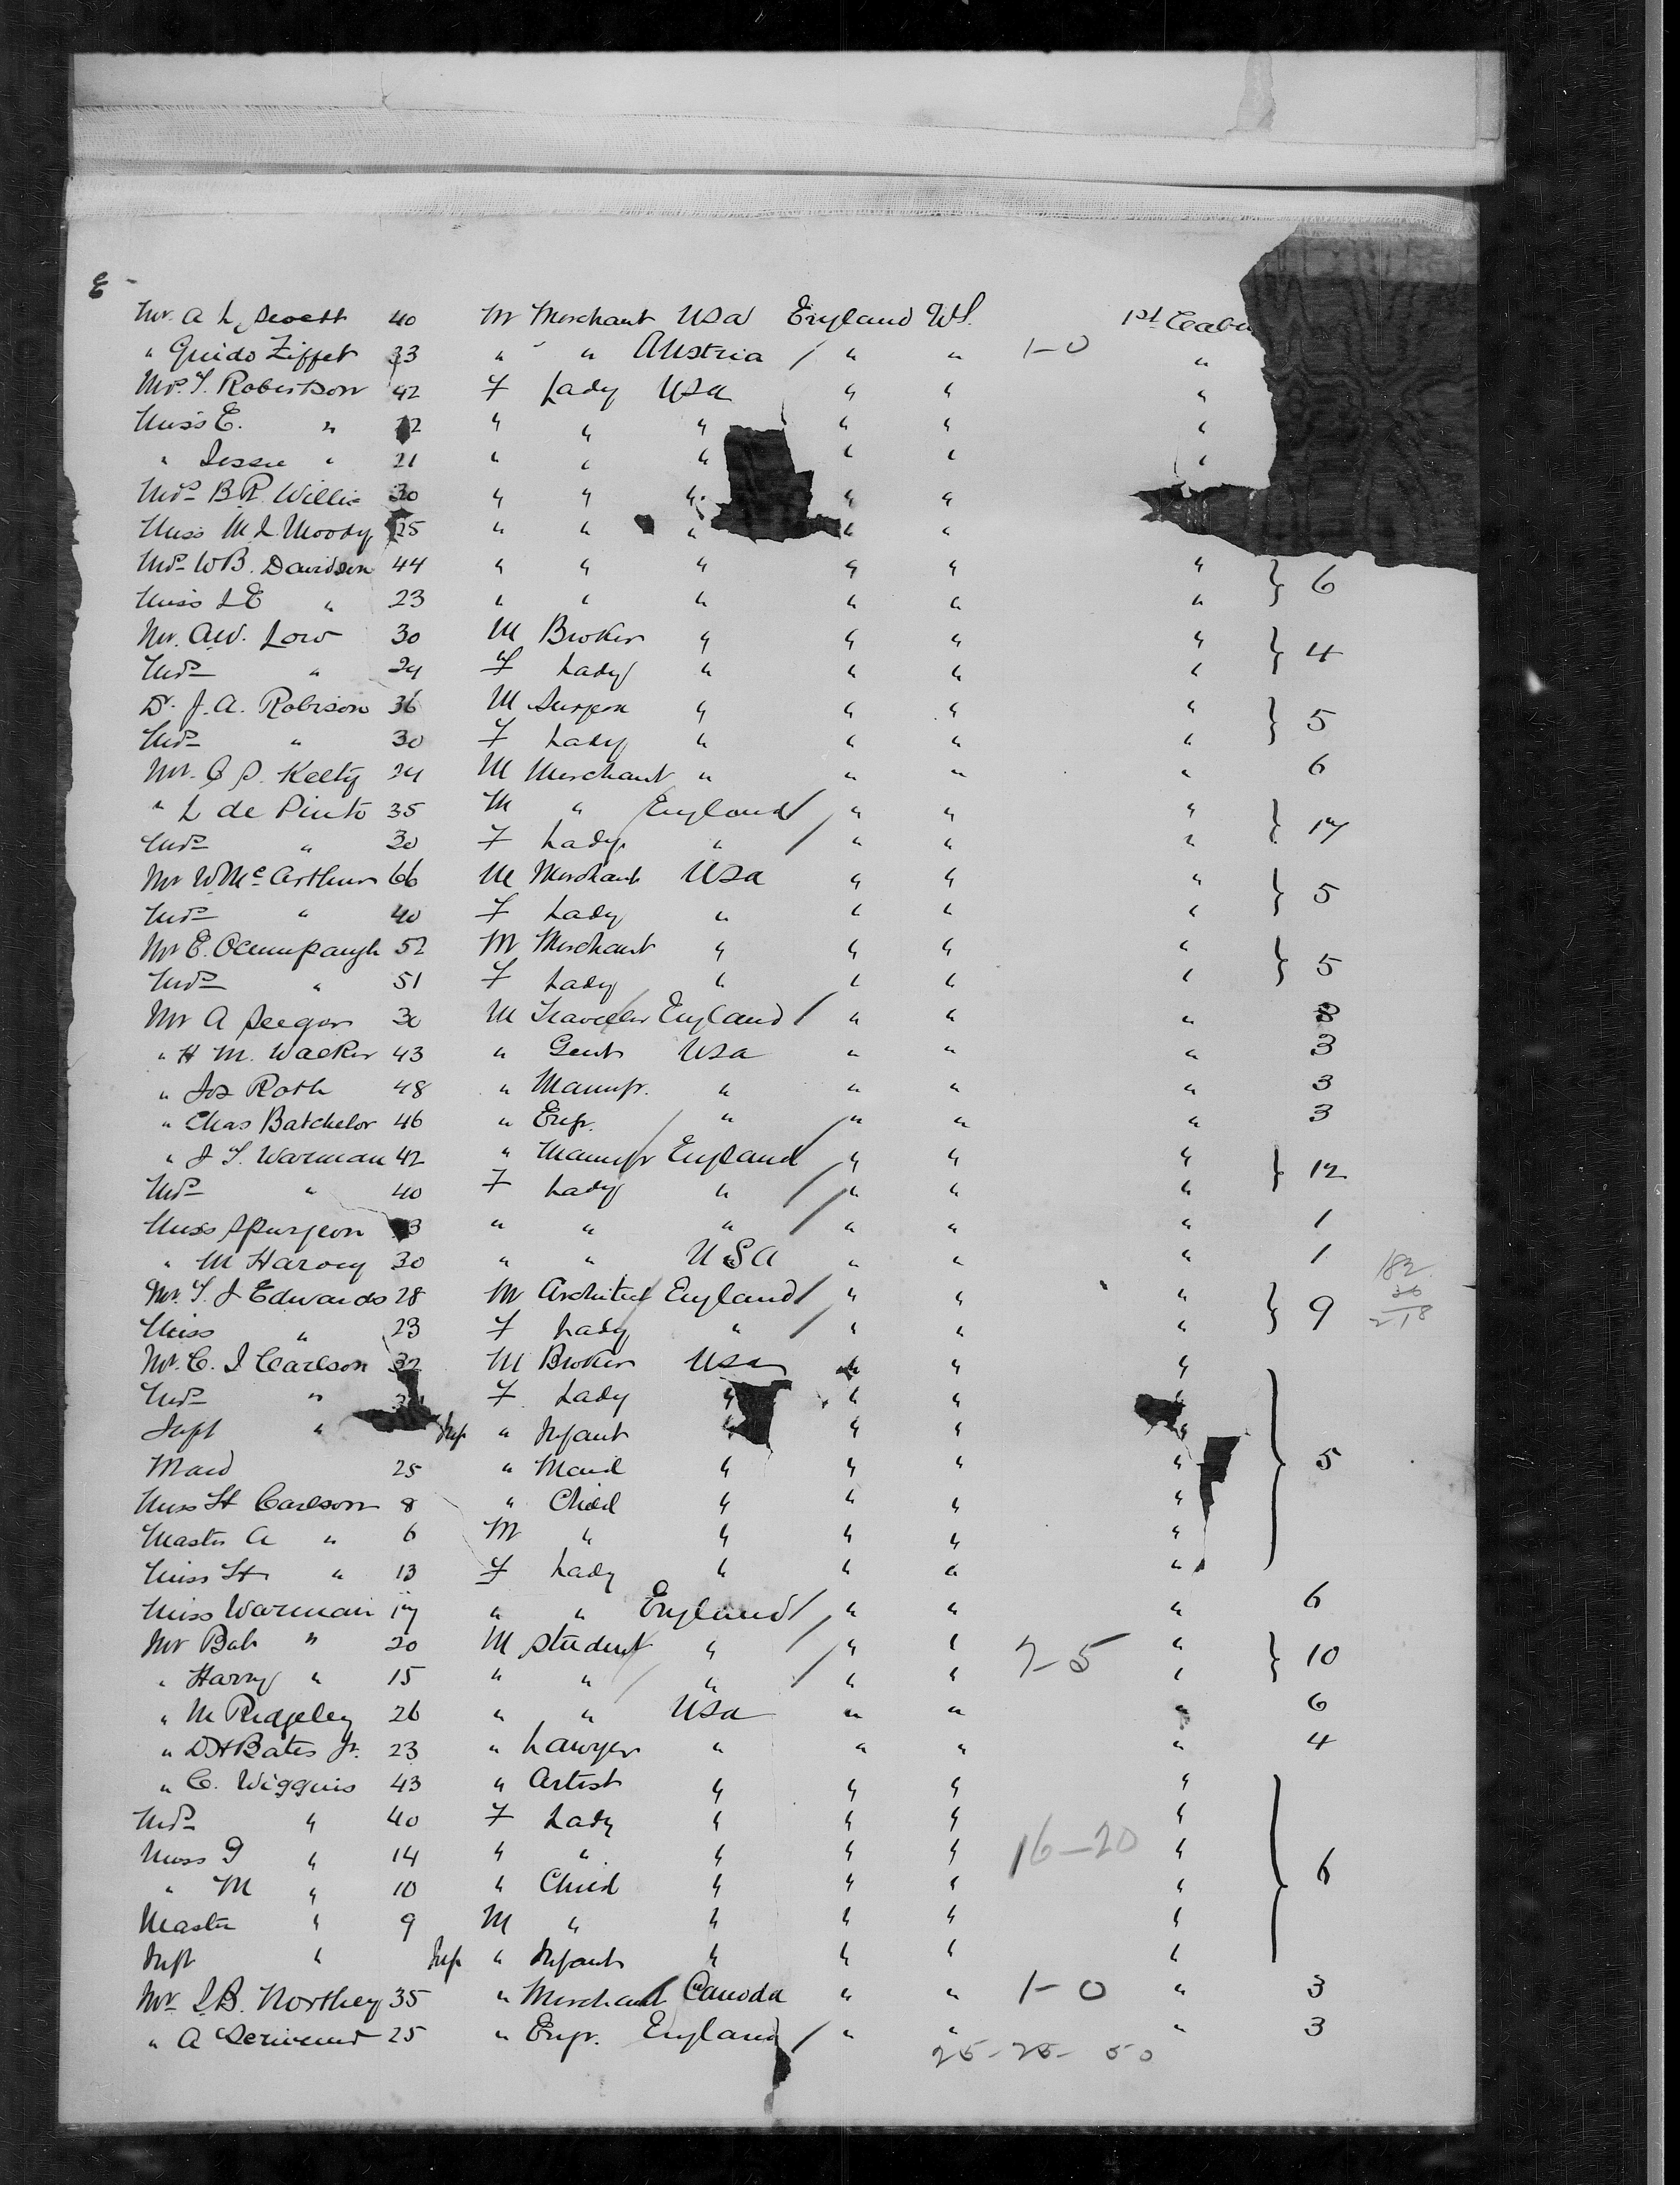 E
Mr. A L Scott 40 M Merchant USA England U.S. 1st Cabi
" Guido Ziffet 33 " " Austria / " " 1-0 "
Mrs. T. Robertson 42 F Lady USA " " "
Miss E. " 2 " " " " " "
" Jessie " 21 " " " " " "
Mrs B R. Willis 30 " " " " "
Miss M L Moody 25 " " " " "
Mrs W B. Davidson 44 " " " " " " } 6
Miss L E " 23 " " " " " "
Mr. A.W. Low 30 M Broker " " " " } 4
Mrs " 24 F Lady " " " "
Dr. J. A. Robison 36 M Surgeon " " " " } 5
Mrs " 30 F Lady " " " "
Mr. P. Kelty 24 M Merchant " " " " 6
" L de Pinto 35 M " England / " " " } 17
Mrs " 30 F Lady " / " " "
Mr W. Mc Arthur 66 M Merchant USA " " " } 5
Mrs " 40 F Lady " " " "
Mr E. Ocumpaugh 52 M Merchant " " " " } 5
Mrs " 51 F Lady " " " "
Mr A Seegar 30 M Traveller England / " " " 8
" H M. Walker 43 " Gent USA " " " 3
" Jos Roth 48 " Manufr. " " " " 3
" Chas Batchelor 46 " Engr. " " " " 3
" J T. Warman 42 " Manufr England / " " " } 12
Mrs " 40 F Lady " / " " "
Miss Spurgeon 3 " " " / " " " 1
" M Harvey 30 " " USA " " " 1
182
Mr. T. J Edwards 28 M Architect England / " " " } 9 36
Miss " 23 F Lady " / " " " 218
Mr. C. J Carlson 32 M Broker USA " " "
Mrs " 3 F Lady " " " "
Inft " Inf " Infant " " "
Maid 25 " Maid " " " " } 5
Miss H Carlson 8 " Child " " " "
Master A " 6 M " " " " "
Miss H " 13 F Lady " " " "
Miss Warman 17 " " England / " " " 6
Mr Bab " 20 M Student " / " " 7-5 " } 10
" Harry " 15 " " " / " " "
" M Ridgeley 26 " " USA " " " 6
" D H Bates Jr. 23 " Lawyer " " " " 4
" C. Wiggins 43 " Artist " " " "
Mrs " 40 F Lady " " " "
Miss G " 14 " " " " " 16-20 " } 6
" M " 10 " Child " " " "
Master " 9 M " " " " "
Inft " Inf " Infant " " " "
Mr J.B. Northey 35 " Merchant Canada " " 1-0 " 3
" A 25 " Engr. England / " " " 3
25-25- 50